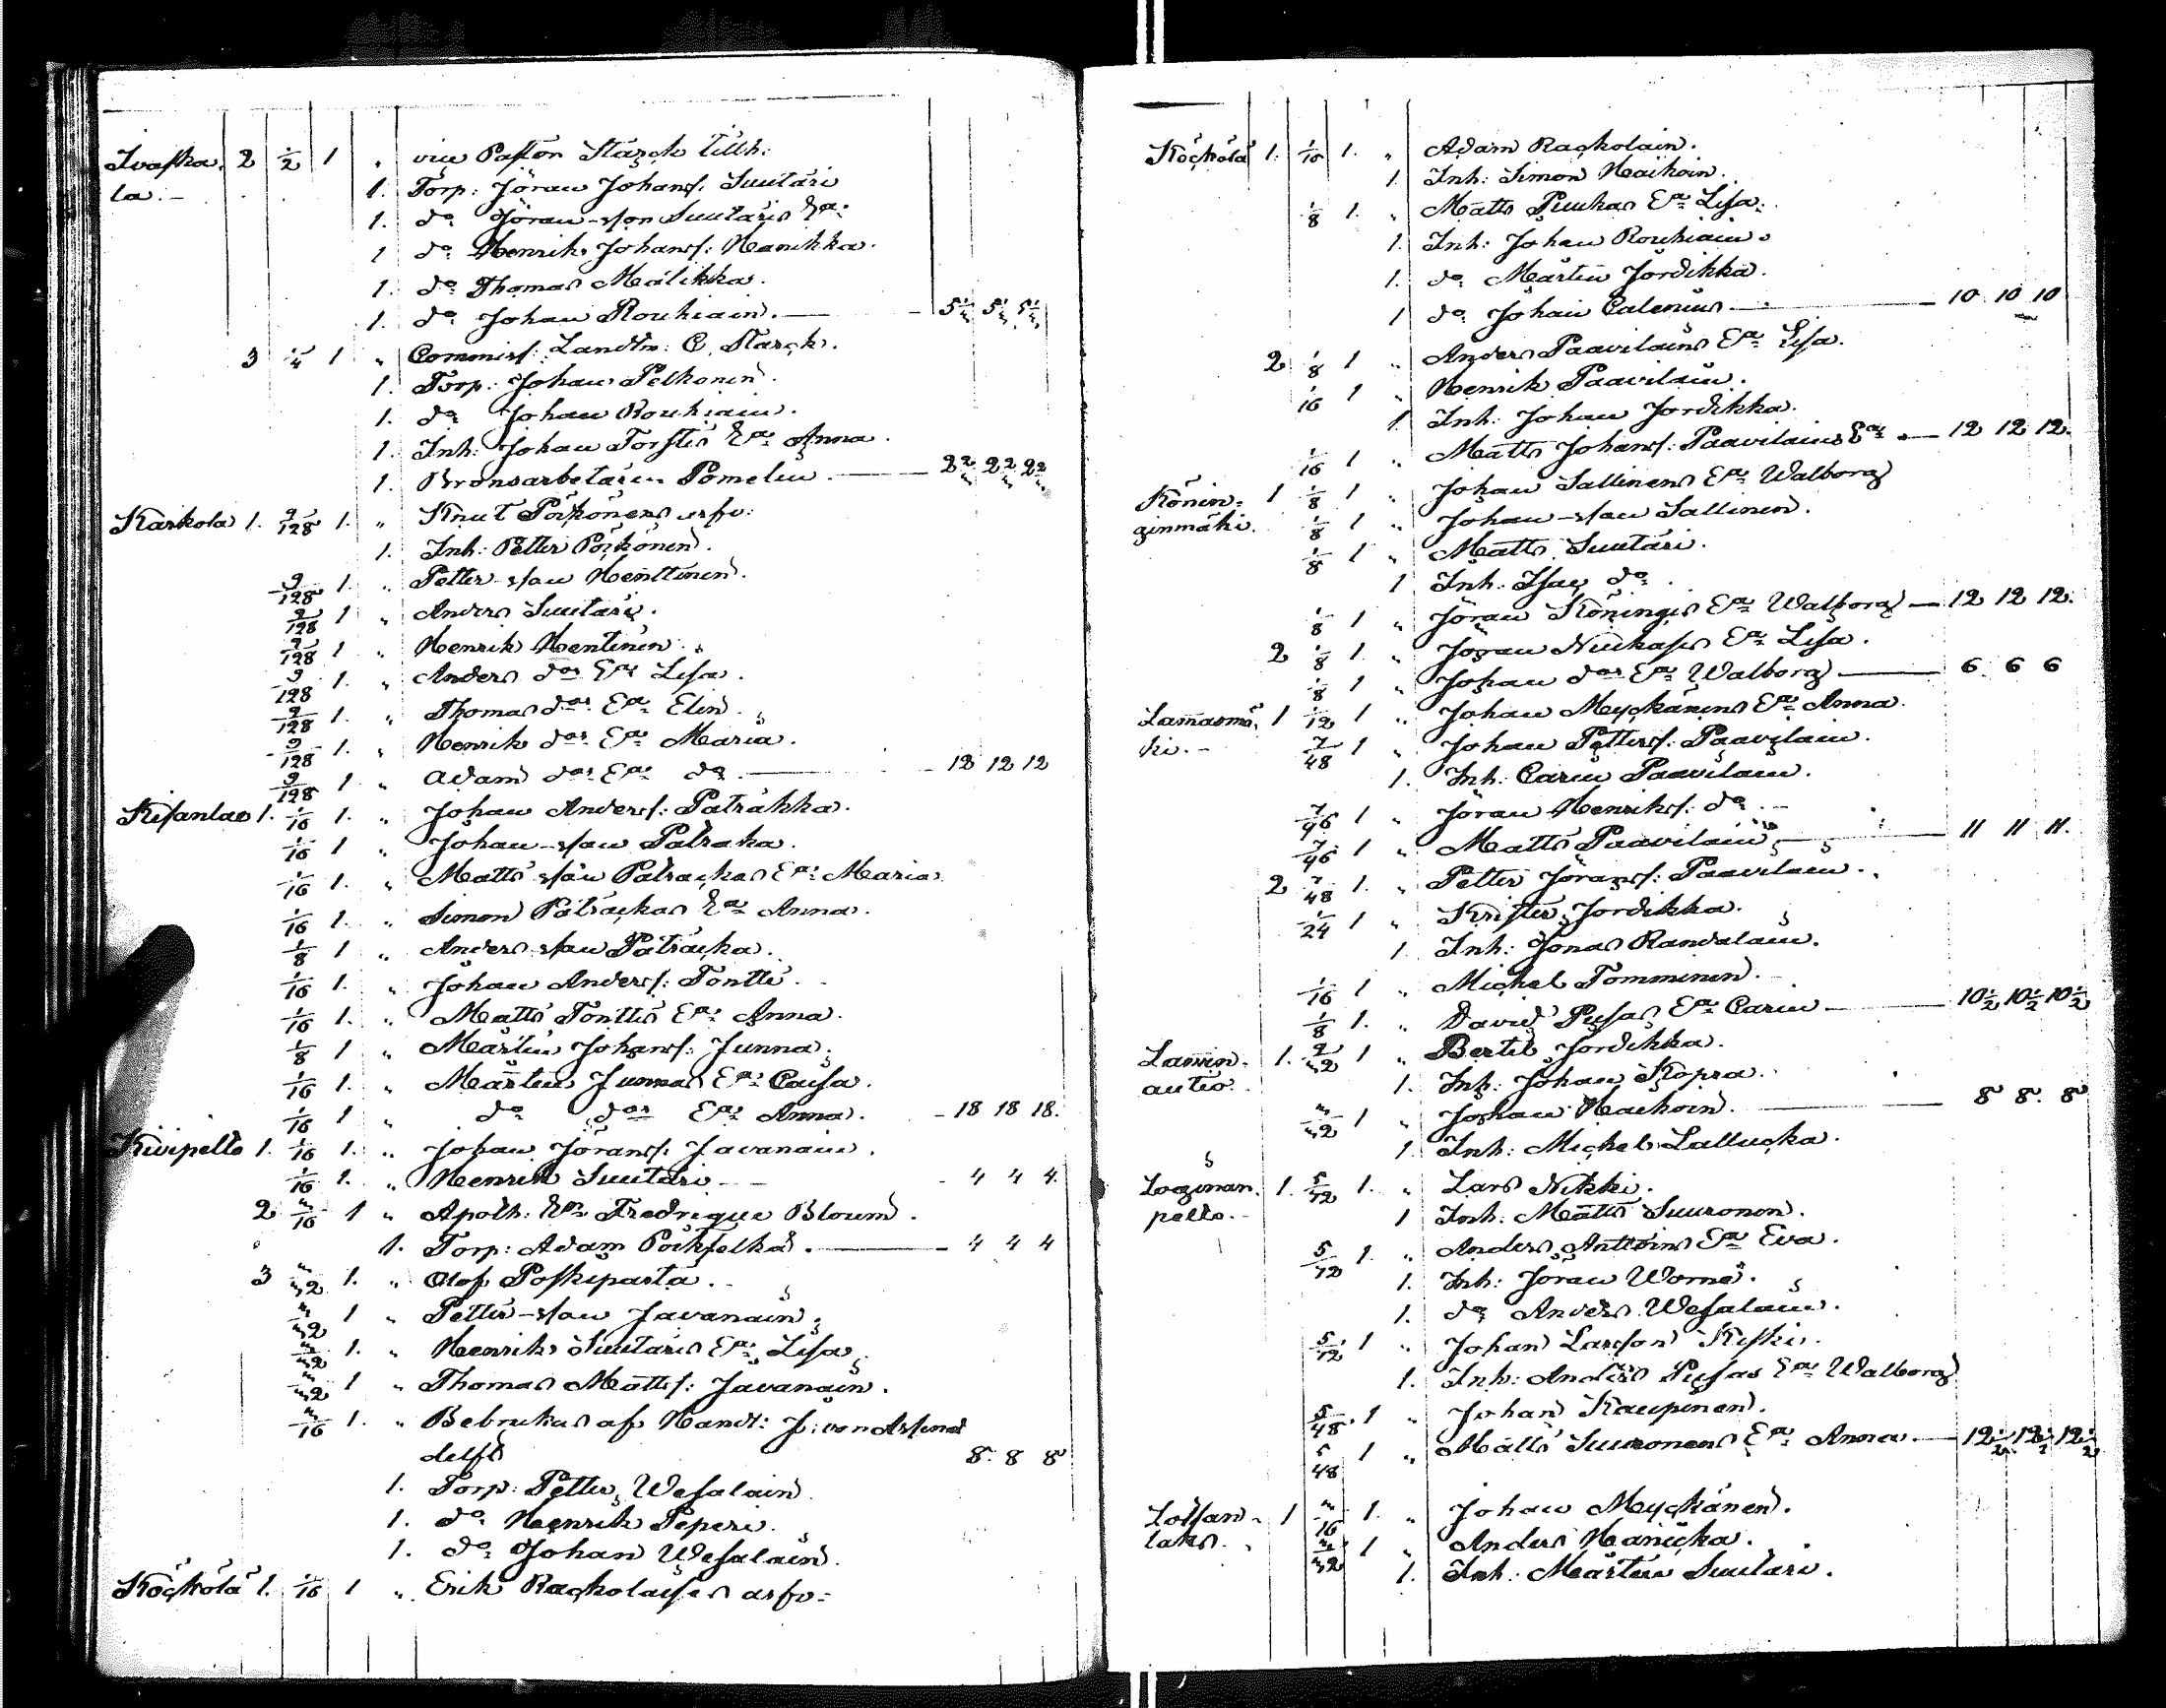 Ivaska- 2 1/2 1 „ vice Pastor Starck tillh:
la.- 1. Torp: Jöran Johans: Suutari
1. do Jöran-son Suutaris Ea:
1 do Henrik Johans: Hanikka.
1. do Thomas Mälikka.
1. do Johan Rouhiain. — 5 1/2 5 1/2 5 1/2
3 1/4 1 „ Commiss: Landtm: C. Starck.
1. Torp: Johan Pelkonen.
1. do Johan Rouhiain.
1. Inh: Johan Torstis Ea: Anna.
1. Pomelin — 2 2 2
Karkola 1. 9/128 1. „ Knut Pörkönens arfv:
1. Inh: Petter Pörkönen.
9/128 1. „ Petter-son Henttinen.
9/128 1 „ Anders Suutari.
9/128 1 „ Henrik Hentinen.
9/128 1. „ Anders dos Ea: Lisa.
9/128 1. „ Thomas dos Ea: Elin.
9/128 1. „ Henrik dos Ea: Maria.
9/128 1 „ Adam dos Ea: do — 12 12 12
1. 1/16 1. „ Johan Anders: Paträkka.
1/16 1 „ Johan-son Patraka.
1/16 1. „ Matts-son Patrackas Ea: Maria.
1/16 1. „ Simon Paträckas Ea: Anna.
1/8 1 „ Anders-son Paträcka.
1/16 1. „ Johan Anders: Tontti.
1/16 1. „ Matts Tonttis Ea: Anna.
1/8 1 „ Mårtin Johans: Junna.
1/16 1. „ Mårtin Junnas Ea: Caisa.
1/16 1 „ do dos Ea: Anna. — 18 18 18.
Kivipelto 1. 1/16 1. „ Johan Jörans: Javanain.
1/16 1. „ Henrik Suutari — 4 4 4.
2 3/16 1 „ Apoth: Ea: Fredrique Bloum.
1. Torp: Adam — 4 4 4
3 3/32 1. „ Olof Poskiparta.
3/32 1 „ Petter-son Javanain.
3/32 1. „ Henrik Suutaris Ea: Lisa.
3/32 1 „ Thomas Matts: Javanain.
3/16 1. „ Bebrukas af Handt: J: von
delfs 8. 8 8
1. Torp: Petter Wesalain
1. do Henrik Peperi.
1. do Johan Wesalain.
Köckölä 1. 1/16 1 „ Erik Rackolaises arfv=
Köckölä 1. 1/10 1. „ Adam Rackolain.
1. Inh: Simon Haikoin.
1/8 1. „ Matts Puukas Ea: Lisa.
1. Inh: Johan Rouhiain.
1. do Mårtin Jordikka.
1 do Johan Calenius — 10 10 10
2 1/8 1 „ Anders Paavilains Ea: Lisa.
1/16 1 „ Henrik Paavilain.
1 Inh: Johan Jordikka.
1/16 1 „ Matts Johans: Paavilains Ea: — 12 12 12.
Könin= 1 1/8 1 „ Johan Sallinens Ea: Walborg
ginmäki. 1/8 1 „ Johan-son Sallinen.
1/8 1 „ Matts Suutari.
1 Inh: Isac do.
1/8 1 „ Jöran Köningis Ea: Walborg — 12 12 12.
2 1/8 1. „ Jöran Ea: Lisa.
1/8 1 „ Johan dos Ea: Walborg — 6. 6 6
Lamasmä- 1 1/12 1 „ Johan Myckänens Ea: Anna.
ki.- 7/48 1 „ Johan Petters: Paavilain.
1. Inh: Carin Paavilain.
7/96 1 „ Jöran Henriks: do.
7/96 1 „ Matts Paavilain — 11 11 11.
2 7/48 1. „ Petter Jörans: Paavilain.
1/24 1 „ Krister Jordikka.
1 Inh: Jonas Randalain.
1/16 1 „ Michel Tomminen.
1/8 1. „ David Pusas Ea: Carin — 10 1/2 10 1/2 10 1/2
Lamin- 1. 9/32 1 „ Bertil Jordikka.
autio. 1. Inh: Johan Kopra.
3/32 1 „ Johan Haikoin. — 8 8. 8
1. Inh: Michel Lallucka.
Loginan- 1. 5/12 1. „ Lars Nikki.
pelto.- 1 Inh: Matts Suuronen.
5/12 1. „ Anders Anttoins Ea: Eva.
1. Inh: Jöran Worna.
1. do Anders Wesalain.
5/12 1 „ Johan Larsson Kiski.
1. Inh: Anders Pusas Ea: Walborg
5/48 1 „ Johan Kaupinen.
5/48 1 „ Matts Suuronens Ea: Anna — 12 1/2 12 1/2 12 1/2
1 3/16 1. „ Johan Myckänen.
laks. 3/32 1 „ Anders Hanicka.
1. Inh: Mårtin Suutari.